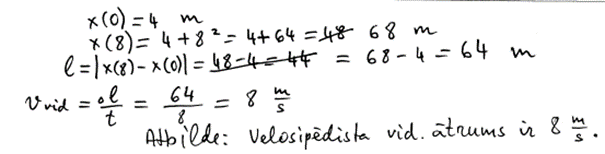 x(0) = 4 m
x(8) = 4 + 8² = 4 + 64 = ~~48~~ 68 m
l = |x(8) - x(0)| = ~~48 - 4 = 44~~ = 68 - 4 = 64 m
v vid = l/t = 64/8 = 8 m/s
Atbilde: Velosipēdista vid. ātrums ir 8 m/s.